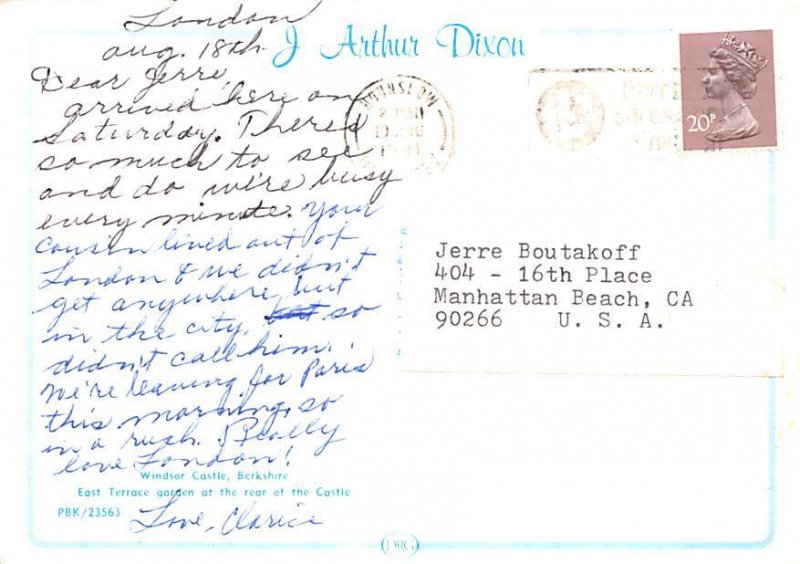 London
Aug. 18th
J Arthur Dixon
Dear Jerre,
arrived here on
Saturday. There's
so much to see
and do we're busy
every minute. Your
cousin lived out of
London & we didn't
get anywhere, but
in the city, so
didn't call him.
We're leaving for Paris
this morning, so
in a rush. Really
love London!
Love, Clarice
Windsor Castle, Berkshire
East Terrace garden at the rear of the Castle
PBK/23563
HOUNSLOW
20P
Jerre Boutakoff
404 - 16th Place
Manhattan Beach, CA
90266 U. S. A.
DRG